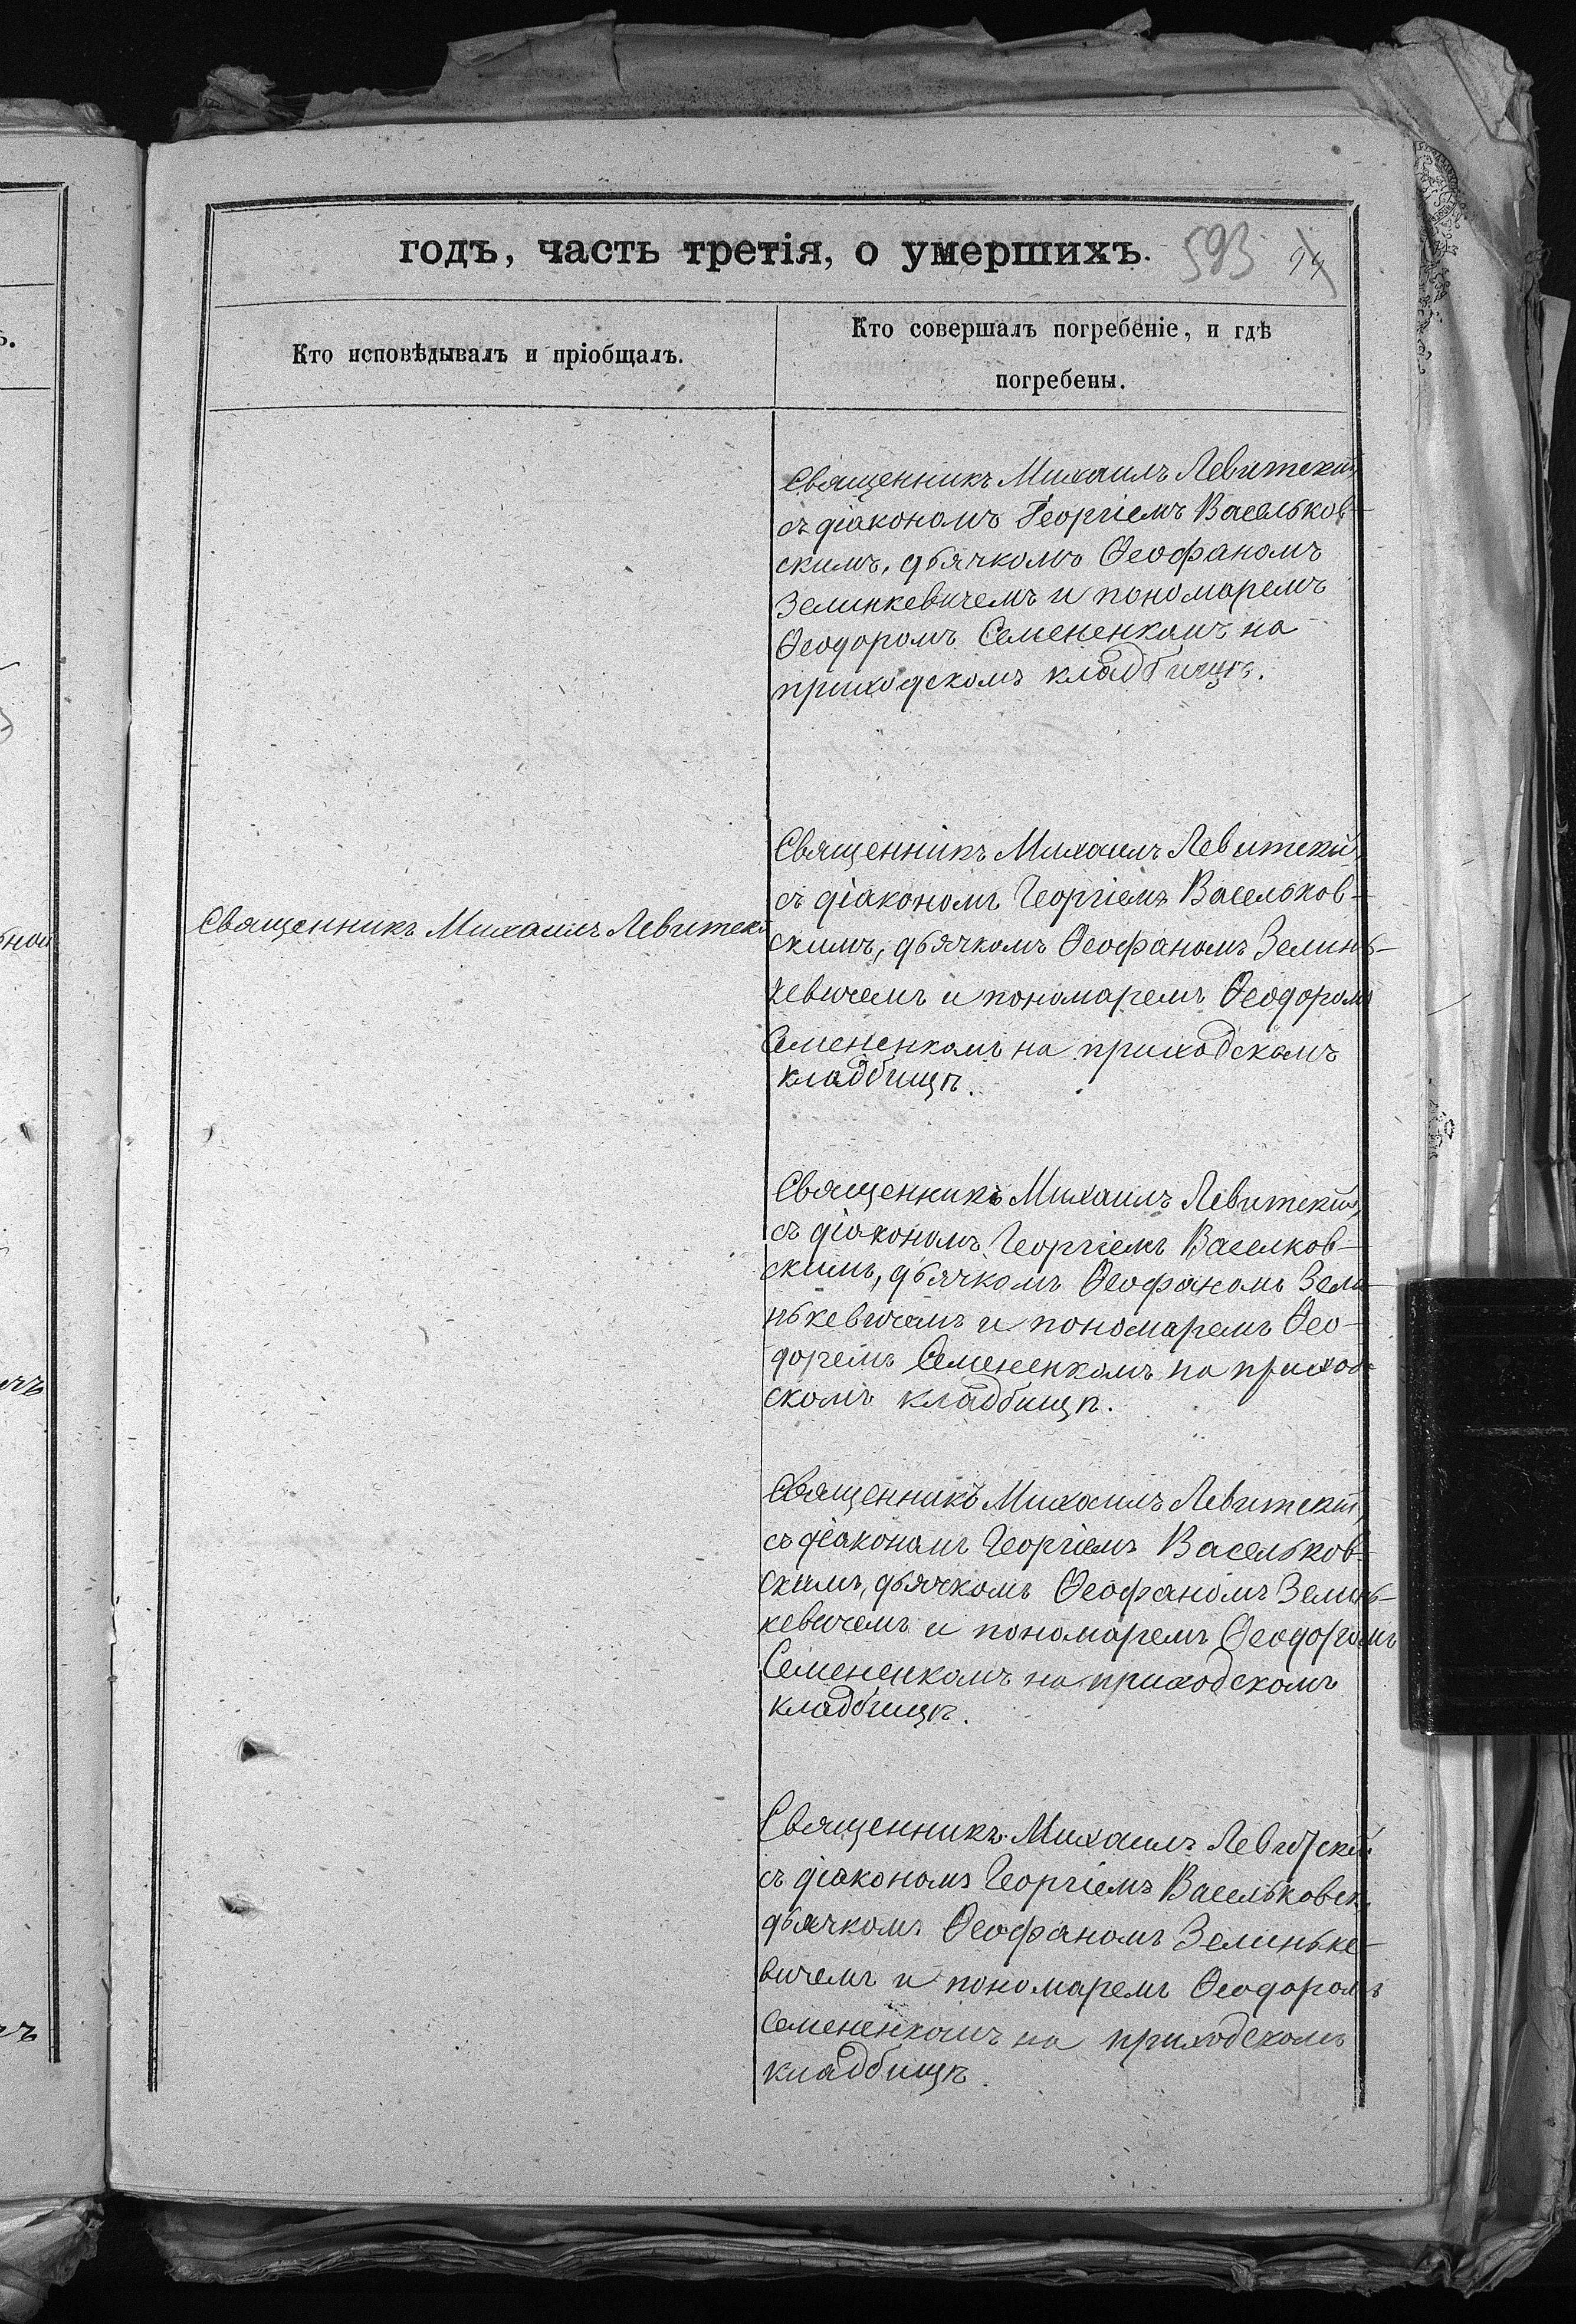 годъ, часть третія, о умершихъ. 593
Кто исповѣдывалъ и пріобщалъ.
Кто совершалъ погребеніе, и гдѣ
погребены.
Священникъ Михаилъ Левитскій,
съ діакономъ Георгіемъ Васельков-
скимъ, дьячкомъ Ѳеофаномъ
Зелинкевичемъ и пономаремъ
Ѳеодоромъ Семененкомъ на
приходскомъ кладбищѣ.
Священникъ Михаилъ Левитскій
Священникъ Михаилъ Левитскій,
съ діакономъ Георгіемъ Васельков-
скимъ, дьячкомъ Ѳеофаномъ Зелинь-
кевичемъ и пономаремъ Ѳеодоромъ
Семененкомъ на приходскомъ
кладбищѣ.
Священникъ Михаилъ Левитскій,
съ діакономъ Георгіемъ Васелков-
скимъ, дьячкомъ Ѳеофаномъ Зели-
нькевичемъ и пономаремъ Ѳео-
доремъ Семененкомъ на приход-
скомъ кладбищѣ.
Священникъ Михаилъ Левитскій,
съ діакономъ Георгіемъ Васельков-
скимъ, дьячкомъ Ѳеофаномъ Зелинь-
кевичемъ и пономаремъ Ѳеодоромъ
Семененкомъ на приходскомъ
кладбищѣ.
Священникъ Михаилъ Левитскій
съ діакономъ Георгіемъ Васельковск.
дьячкомъ Ѳеофаномъ Зелиньке-
вичемъ и пономаремъ Ѳеодоромъ
Семененкомъ на приходскомъ
кладбищѣ.